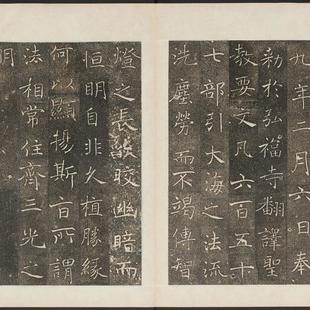 九年二月六日奉
勅於弘福寺翻譯聖
教要文凡六百五十
七部引大海之法流
洗塵勞而不竭傳智
燈之長燄皎幽暗而
恒明自非久植勝緣
何以顯揚斯旨所謂
法相常住齊三光之
明